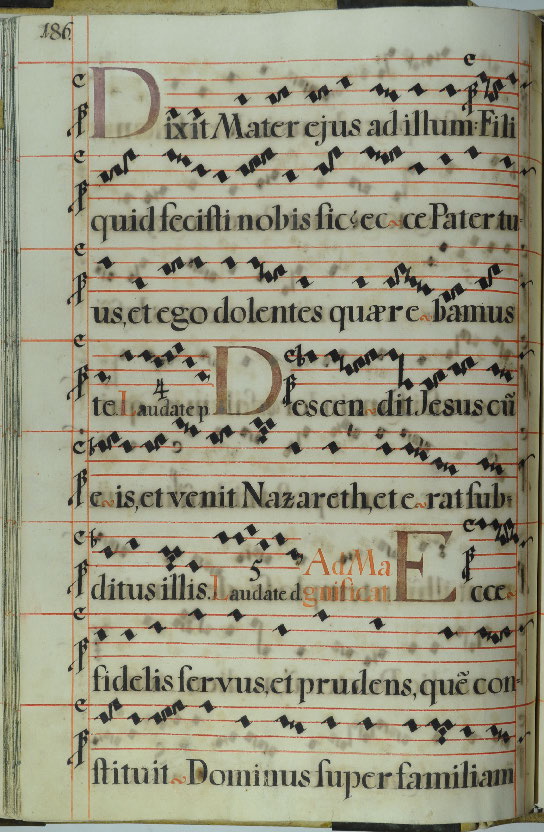 186
Dixit Mater ejus ad illum: Fili
quid fecisti nobis sic? ec-ce Pater tu-
us, et ego dolentes quære-bamus
te. Laudate p 4 Descen-dit Jesus cū
e-is, et venit Nazareth, et e-rat sub-
ditus illis. Laudate d 5 Ad Magnificat Ecce
fidelis servus, et prudens, quē con-
stituit Dominus super familiam